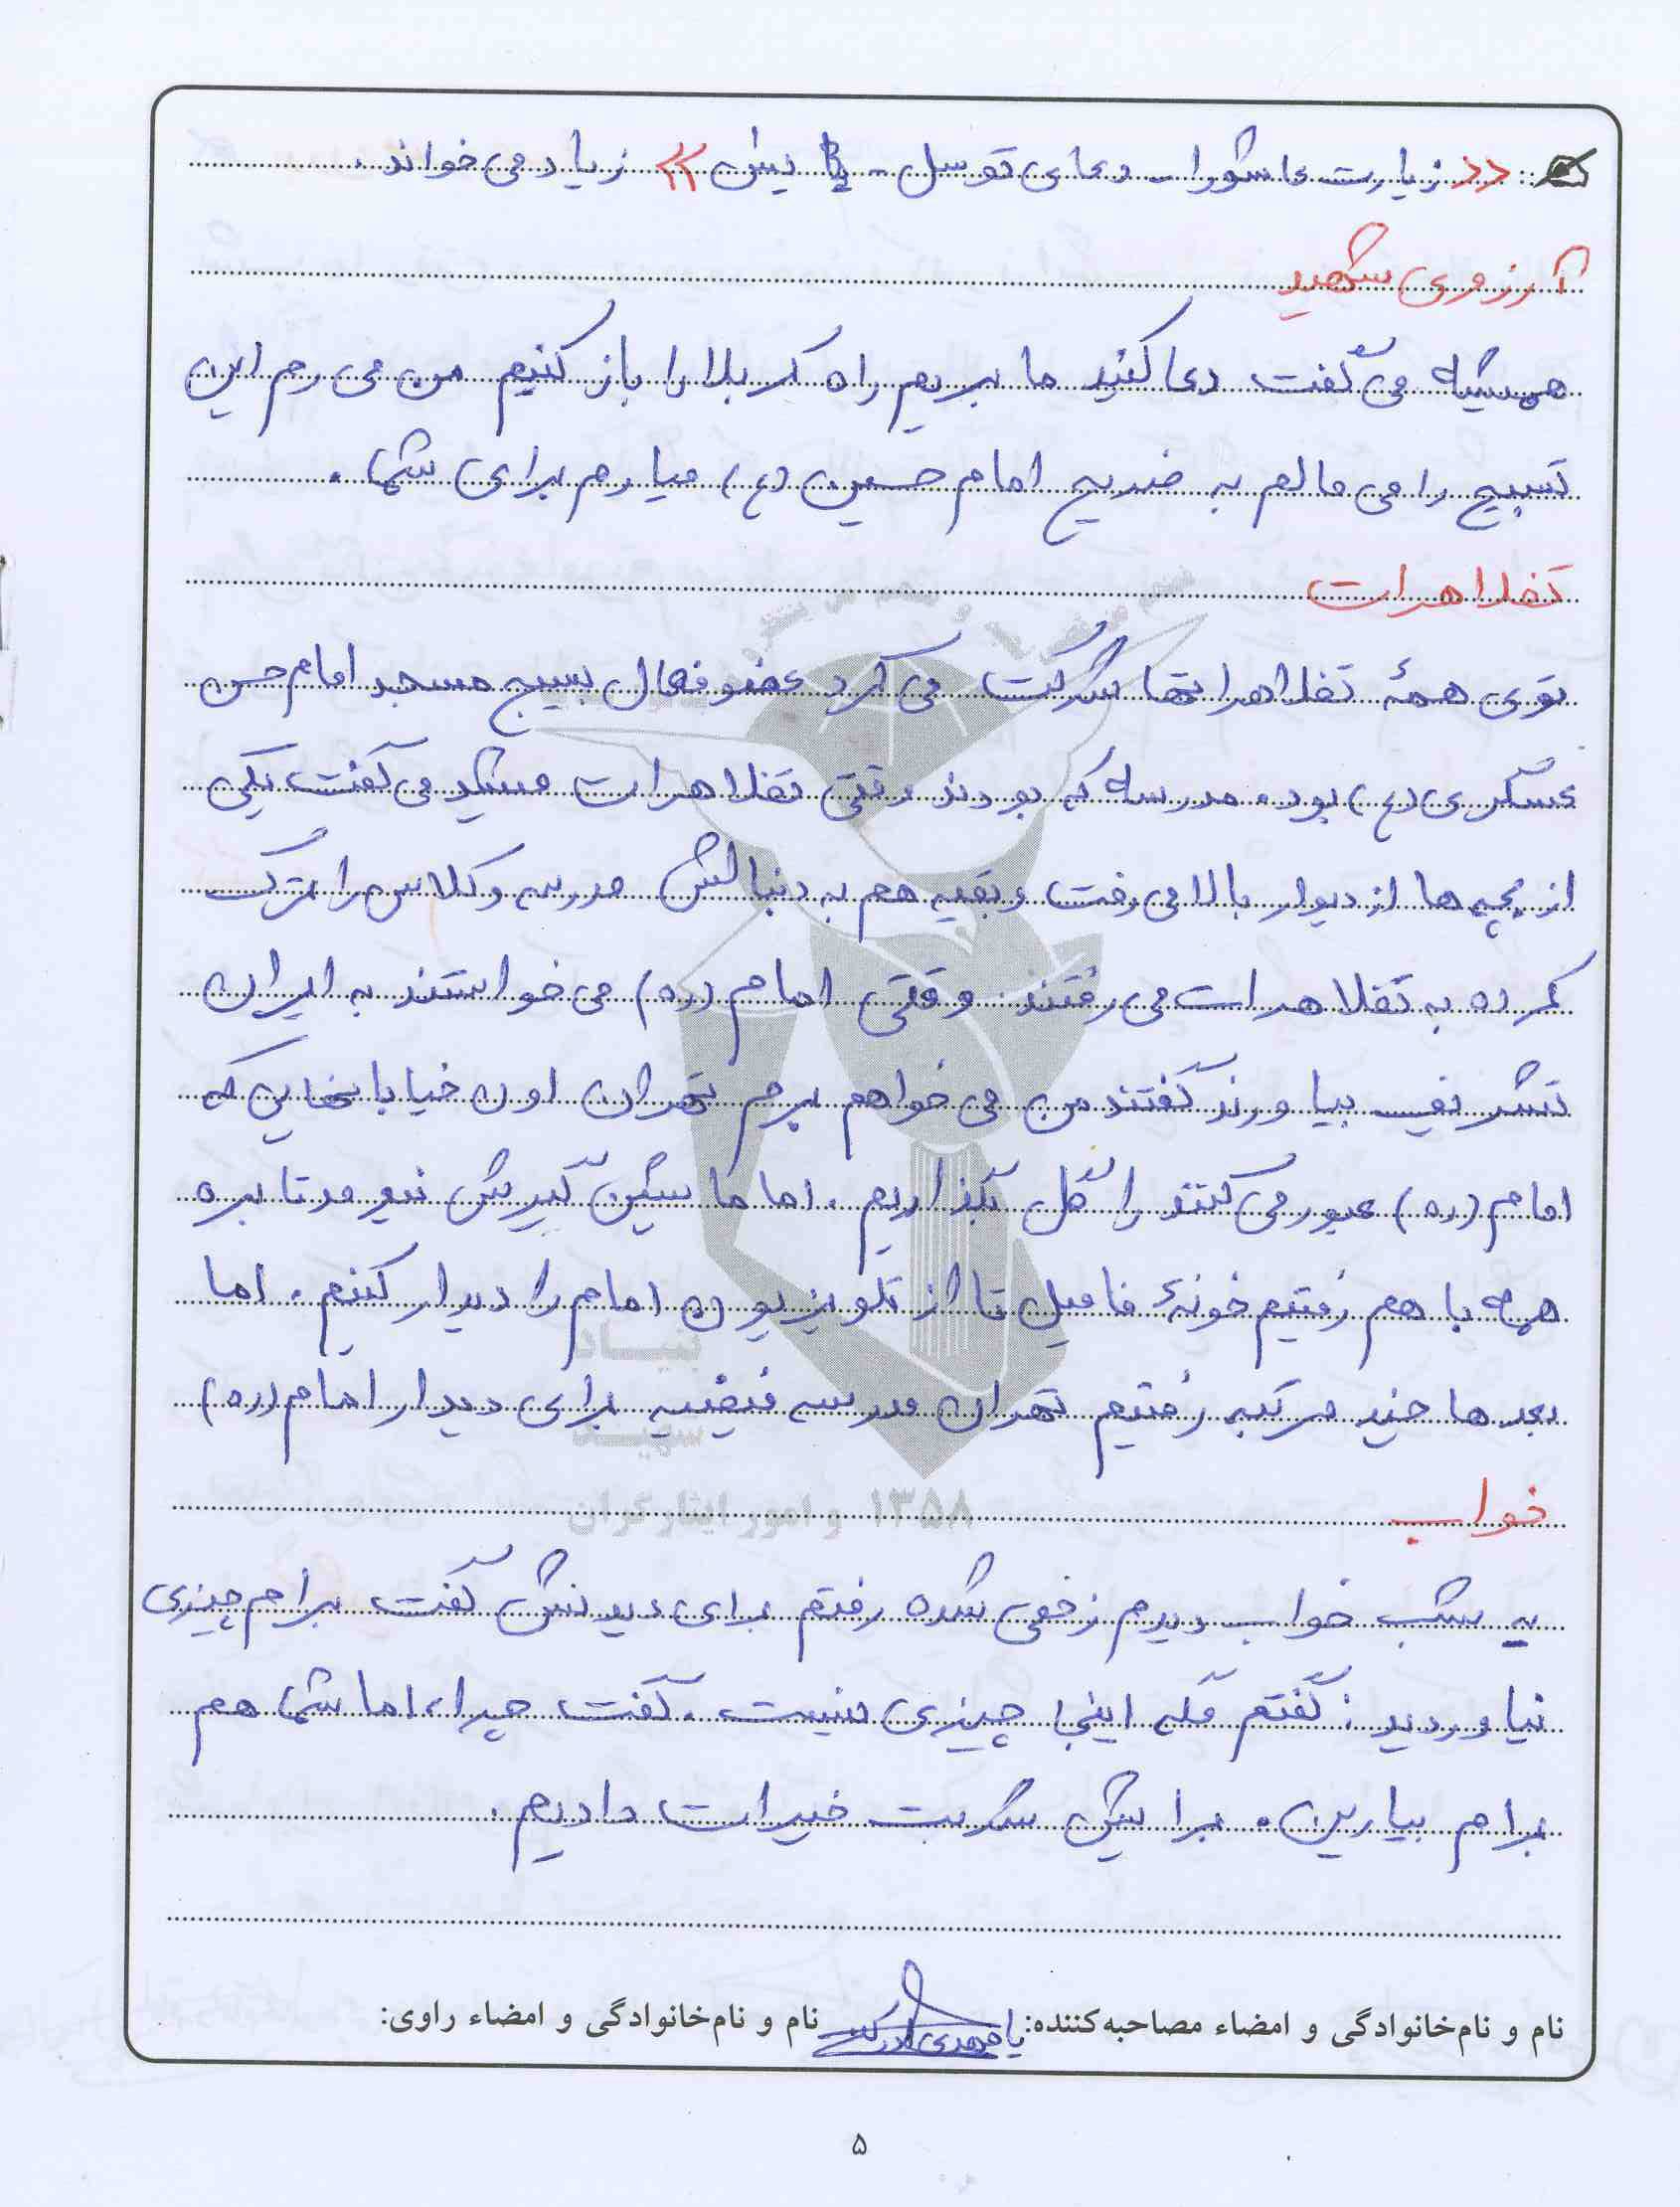 «زیارت عاشورا - دعای توسل - یس» زیاد می خواند.
آرزوی شهید
همیشه می گفت دعا کنید ما بریم راه کربلا را باز کنیم من می رم این
تسبیح را می مالم به ضریح امام حسین (ع) میارم برای شما.
تظاهرات
توی همهٔ تظاهراتها شرکت می کرد عضو فعال بسیج مسجد امام حسن
عسگری (ع) بود. مدرسه که بودند وقتی تظاهرات میشد می گفت یکی
از بچه ها از دیوار بالا می رفت و بقیه هم به دنبالش مدرسه و کلاس را ترک
کرده به تظاهرات می رفتند. وقتی امام (ره) می خواستند به ایران
تشریف بیاورند گفتند من می خواهم برم تهران اون خیابانهایی که
امام (ره) عبور می کنند را گل بگذاریم. اما ماشین گیرش نیومد تا بره
همه با هم رفتیم خونهٔ فامیل تا از تلویزیون امام را دیدار کنیم. اما
بعدها چند مرتبه رفتیم تهران مدرسه فیضیه برای دیدار امام (ره)
خواب
یه شب خواب دیدم زخمی شده رفتم برای دیدنش گفت برام چیزی
نیاوردید: گفتم مگه اینجا چیزی نیست. گفت چرا، اما شما هم
برام بیارین. براش شربت خیرات دادیم.
نام و نام‌خانوادگی و امضاء مصاحبه‌کننده: نام و نام‌خانوادگی و امضاء راوی:
بنیاد
شهید
و امور ایثارگران ۱۳۵۸
۵